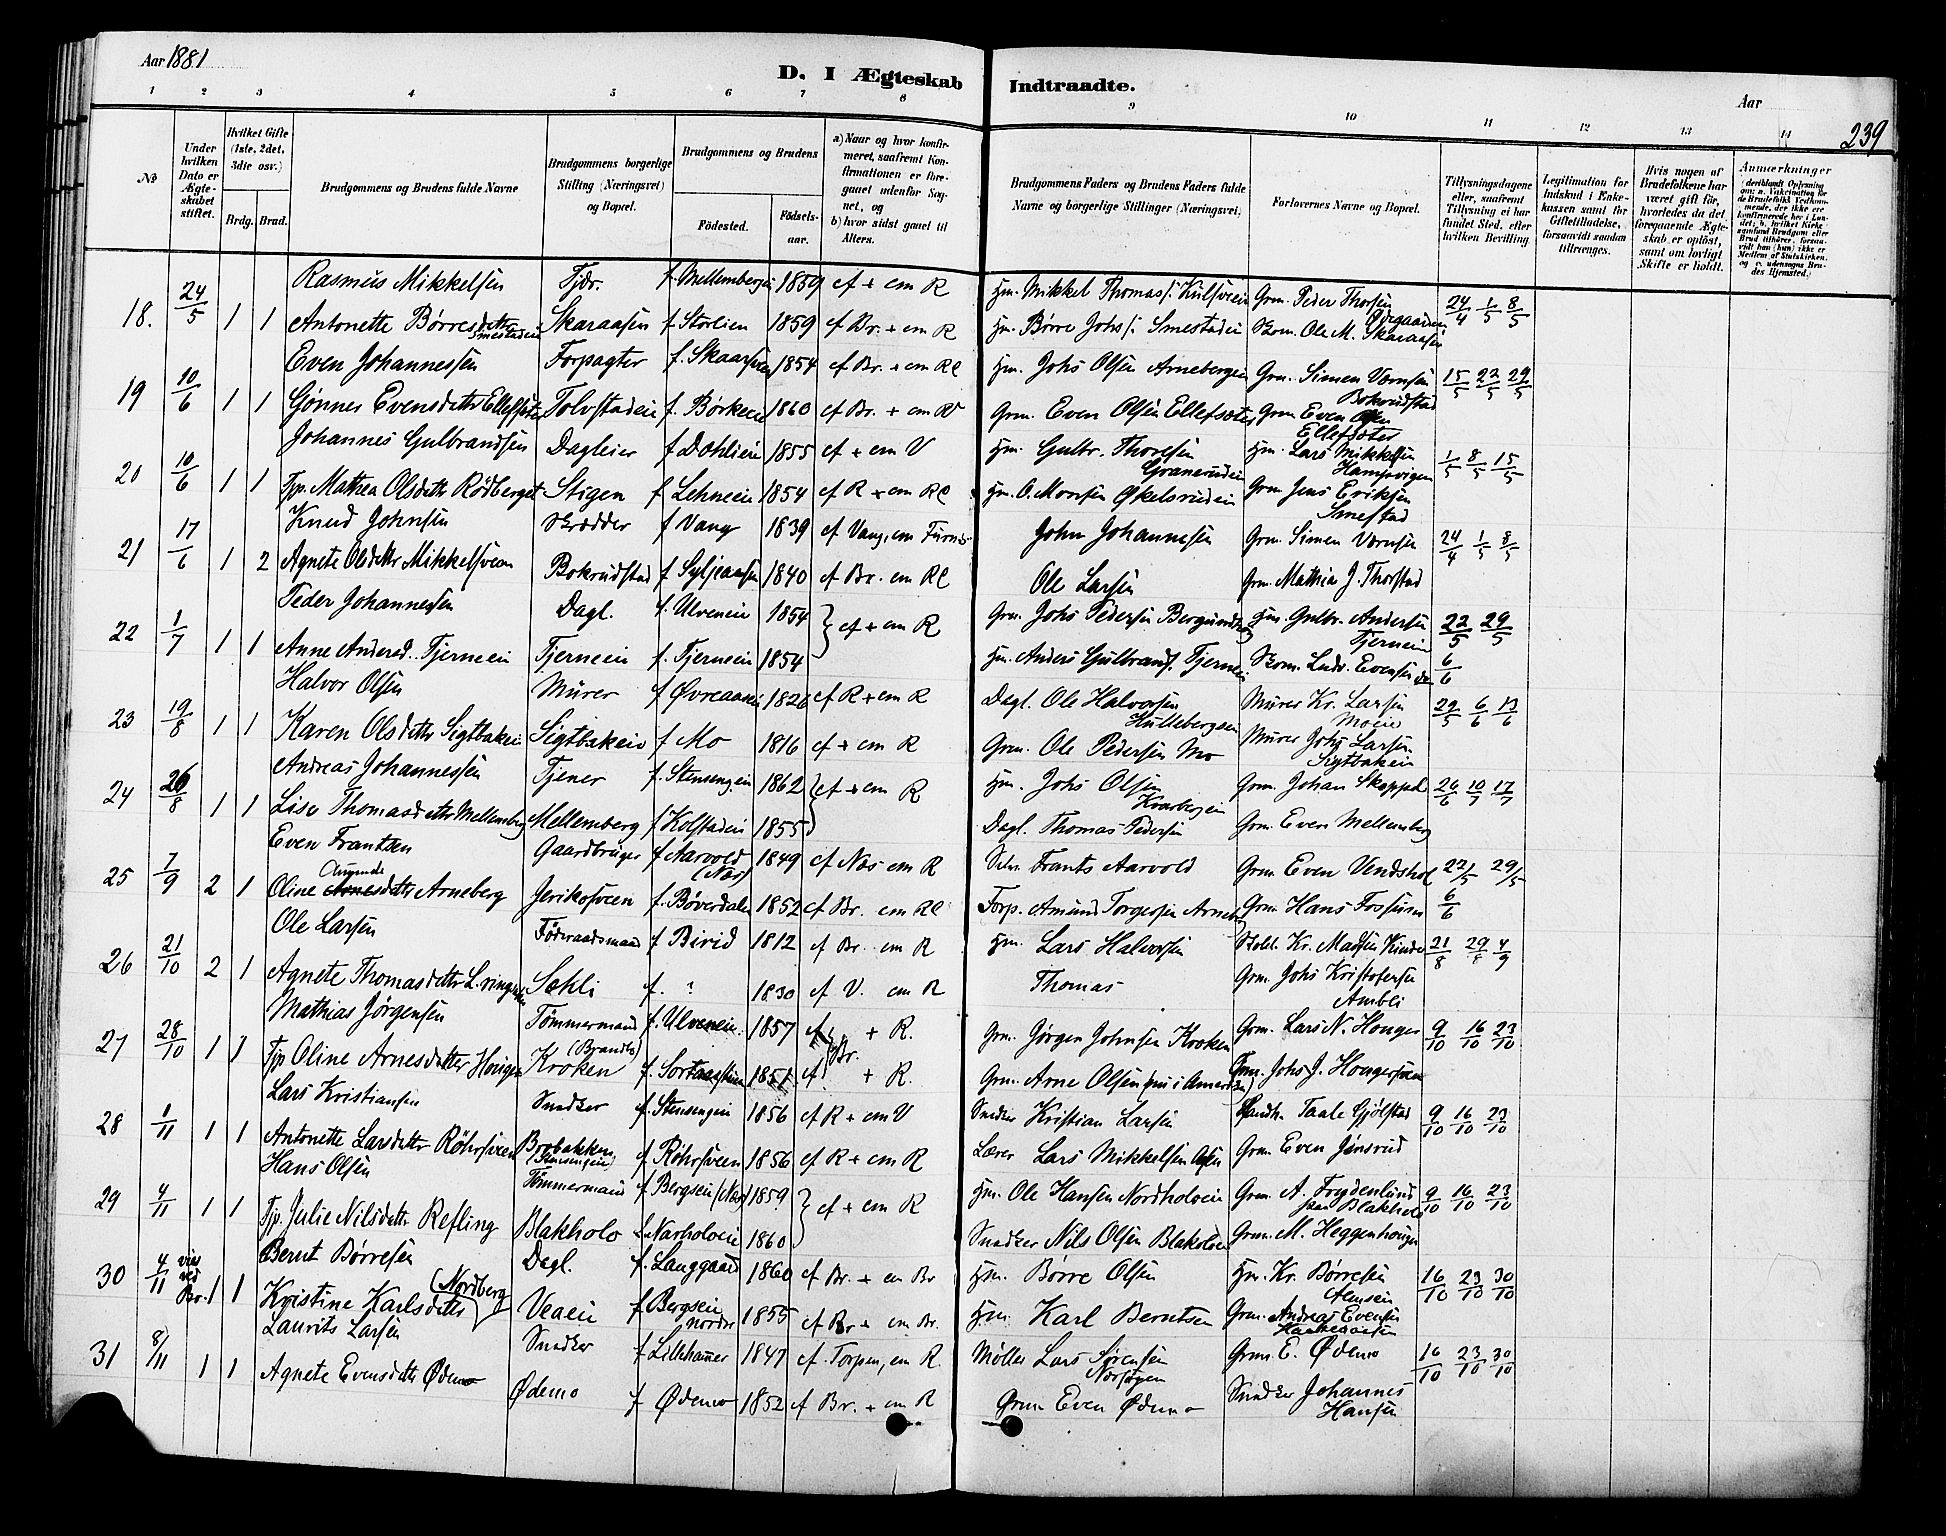 Aar 1881
D. I Ægteskab Indtraadte.
Aar
239
1 2 3 4 5 6 7 8 9 10 11 12 13 14
No
Under hvilken Dato er Ægteskabet stiftet.
Hvilket Gifte (1ste, 2det, 3die osv.)
Brdg. Brud.
Brudgommens og Brudens fulde Navne
Brudgommens borgerlige Stilling (Næringsvei) og Bopæl.
Brudgommens og Brudens
Fødested. Fødselsaar.
a) Naar og hvor konfirmeret, saafremt Konfirmationen er foregaaet udenfor Sognet, og
b) hvor sidst gaaet til Alters.
Brudgommens Faders og Brudens Faders fulde Navne og borgerlige Stillinger (Næringsvei)
Forlovernes Navne og Bopæl.
Tillysningsdagene eller, saafremt Tillysning ei har fundet Sted, efter hvilken Bevilling.
Legitimation for Indskud i Enkekassen samt for Giftetilladelse, forsaavidt saadan tiltrænges.
Hvis nogen af Brudefolkene har været gift før, hvorledes da det foregaaende Ægteskab er opløst, samt om lovligt Skifte er holdt.
Anmærkninger
18. 24/5 1 1 Rasmus Mikkelsen Tjdr. f. Mellembergei 1859 cf + cm R Hm. Mikkel Thomass. Kulsveen Grm. Peder Thorsen Ødegaarden 24/4 1/5 8/5
Antonette Børresdatter Smestadeie Skaraasen f Storlien 1859 cf Br. + cm R Hm. Børre Johs s. Smestadeie Skom. Ole M. Skaraasen
19 10/6 1 1 Even Johannessen Forpagter f. Skaarsveen 1854 cf Br. + cm Rl Hm. Johs Olsen Arnebergeie Grm. Simen Værnsen Bokrudstad 15/5 22/5 29/5
Gønner Evensdatter Ellefsæter Tolvstadeie f. Børkeeie 1860 cf Br. + cm R Grm. Even Olsen Ellefsæter Grm Even Olsen Ellefsæter
20 10/6 1 1 Johannes Gulbrandsen Dagleier f Dahlieie 1855 cf + cm V Hm. Gulbr. Thoresen Granerudeie Hm. Lars Mikkelsen 1/5 8/5 15/5
Tjp. Mathea Olsdatter Rødberget Stigen f Lehneeie 1854 cf R + cm Rl Hm. O. Monsen Økelsrudeie Grm Jens Eriksen Smestad
21 17/6 1 2 Knud Johnsen Skrædder f Vang 1839 cf Vang, cm Furnes John Johannesen Grm. Simen Værnsen 24/4 1/5 8/5
Agnete Olsdatter Mikkelsveen Bokrudstad f Syljeaasen 1840 cf Br. cm Rl Ole Larsen Grm. Mathia J. Thorstad
22 1/7 1 1 Peder Johannessen Dagl. f. Ulveneie 1854 } cf + cm R Grm. Johs Pedersen Hm. Gulbr. Andersen Tjerneie 22/5 29/5
Anne Andersd. Tjerneeie Tjerneeie f. Tjerneeie 1854 Hm. Anders Gulbrands. Tjerneie Skom. Ludv. Evensen do 6/6
23 19/8 1 1 Halvor Olsen Murer f Øvreaaneie 1826 cf R + cm R Dagl. Ole Halvorsen Kullebergeie Murer Kr. Larsen Moeie 29/5 6/6 13/6
Karen Olsdatter Sigtbakeie Sigtbakeie f Mo 1816 cf + cm R Grm. Ole Pedersen Mo Murer Johs Larsen Sigtbakeie
24 26/8 1 1 Andreas Johannessen Tjener f. Stensengeie 1862 } cf + cm R Hm. Johs Olsen Kvarbergeie Grm. Johan Skappel 26/6 10/7 17/7
Lise Thomasdatter Mellemberg Mellemberg f Kolstadeie 1855 Dagl. Thomas Pedersen Grm. Even Mellemberg
25 7/9 2 1 Even Frantzen Gaardbruger f Aarvold (Næs) 1849 cf Næs cm R Selve. Frants Aarvold Grm. Even Vendshol 22/5 29/5
Oline Amunds datter Arneberg Jerikosveen f. Bøverdalen 1852 cf Br. cm Rl Forp. Amund Torgersen Arneberg Grm. Hans Fossum 6/6
26 21/10 2 1 Ole Larsen Føderaadsmand f Birid 1812 cf Br. cm R Hm. Lars Halvorsen Skoleh. Kr. Madsen Kinde 21/8 29/8 4/9
Agnete Thomasdatter Sæhli f. ? 1830 cf V. cm R Thomas Grm. Johs Kristofersen Ambli
27 28/10 1 1 Mathias Jørgensen Tømmermand f. Ulveneie 1857 cf Br. + R. Grm. Jørgen Johnsen Kroken Grm. Lars N. Honger 9/10 16/10 23/10
Tjp Oline Arnesdatter Hovigen Kroken (Brandbo) f. 1851 cf + R. Grm. Arne Olsen (nu i Amerika) Grm. Johs J. Hongersveen
28 1/11 1 1 Lars Kristiansen Snedker f. Stensengeie 1856 cf R + cm V Snedker Kristian Larsen Landh. Taale Gjølstad 9/10 16/10 23/10
Antonette Larsdatter Røhrsveen Brobakken (Stensengeie) f Røhrsveen 1856 cf R + cm R Lærer Lars Mikkelsen Aasen Grm Even Jønsrud
29 4/11 1 1 Hans Olsen Tømmermand f Bergseie (Næs) 1859 } cf + cm R Hm. Ole Hansen Nordholveie Grm. A. Frydenlund paa Blakholo 9/10 16/10 23/10
Tjp. Julie Nilsdatter Refling Blakholo f Narholoeie 1860 Snedker Nils Olsen Blakoloeie Grm. M. Heggenhougen
30 4/11 viet ved Br. 1 1 Bernt Børresen Dagl. f. Langgaard 1860 cf Br. + cm Br Hm. Børre Olsen Hm. Kr. Børresen Alenseie 16/10 23/10 30/10
Kristine Karlsdatter (Nordberg) Veaeie f Bergseie nordre 1855 cf Br + cm Br. Hm. Karl Berntsen Grm. Andreas Evensen
31 8/11 1 1 Laurits Larsen Snedker f Lillehamer 1847 cf. Torpen, cm R. Møller Lars Sørensen Grm E. Ødemo 16/10 23/10 30/10
Agnete Evensdatter Ødemo Ødemo f Ødemo 1852 cf Br. + cm R Grm Even Ødemo Snedker Johannes Hansen